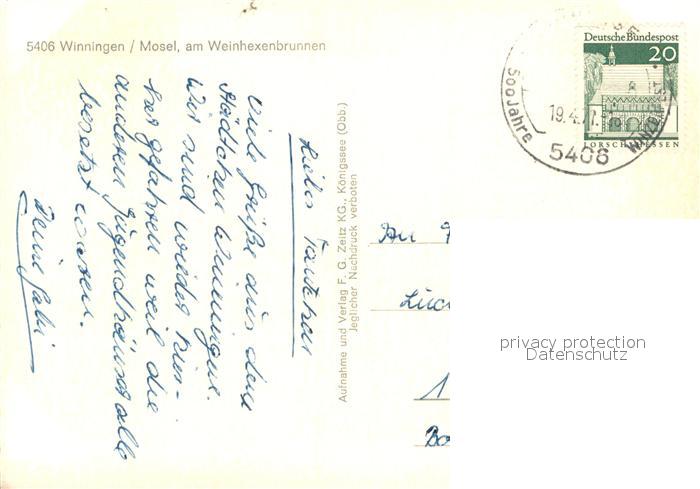 5406 Winningen / Mosel, am Weinhexenbrunnen
Deutsche Bundespost
20
LORSCH/HESSEN
500 Jahre
19.4.71
5406
Liebes Tantchen
viele Grüße aus dem
Städtchen Winningen.
Wir sind wieder hier-
her gefahren weil die
anderen Jugendhäuser alle
besetzt waren.
Deine Gabi
Aufnahme und Verlag F. G. Zeitz KG., Königssee (Obb.)
Jeglicher Nachdruck verboten
An
privacy protection
Datenschutz